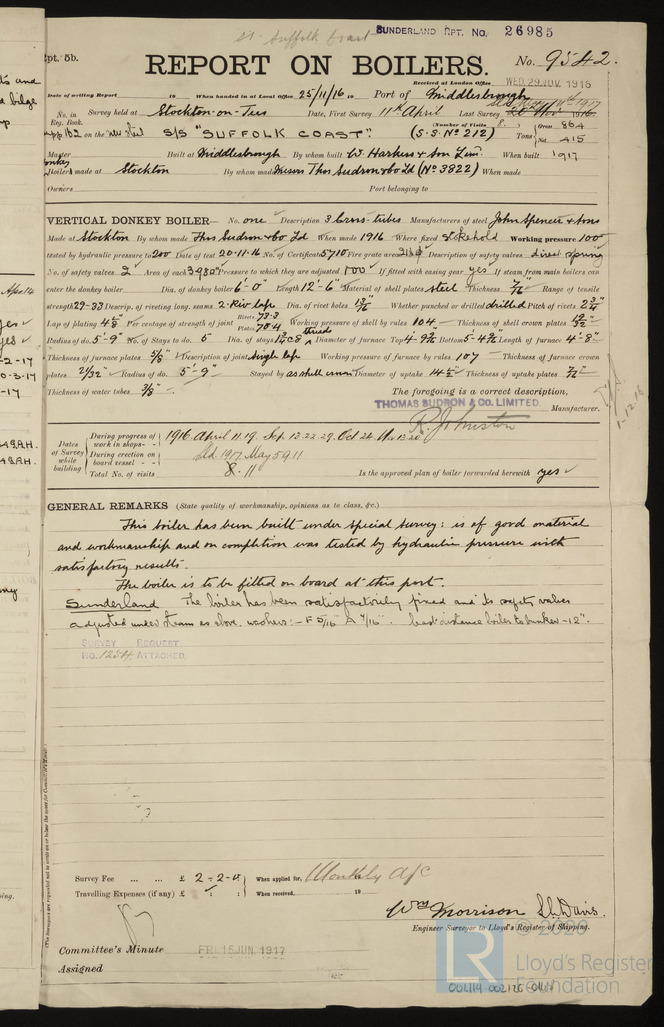 SS Suffolk Coast
SUNDERLAND RPT. No. 26985
Rpt. 5b.
No. 9542.
REPORT ON BOILERS.
Received at London Office WED. 29 NOV. 1916
Date of writing Report 19 When handed in at Local Office 25/11/16 19 Port of Middlesbrough
No. in Reg. Book. Survey held at Stockton-on-Tees Date, First Survey 11th April Last Survey
162 on the new steel S/S "SUFFOLK COAST". (S.S. No 212) (Number of Visits ) Tons Gross 864 Net 415
Master Built at Middlesbrough By whom built W. Harkess & Son Lim. When built 1917
Donkey Boiler made at Stockton By whom made Messrs Thos Sudron & Co Ld (No 3822) When made
Owners Port belonging to
VERTICAL DONKEY BOILER— No. one Description 3 Cross-tubes Manufacturers of steel John Spencer & Sons
Made at Stockton By whom made Thos Sudron & Co Ld When made 1916 Where fixed Stokehold Working pressure 100
tested by hydraulic pressure to 200 Date of test 20.11.16 No. of Certificate 5710 Fire grate area Description of safety valves direct spring
No. of safety valves 2 Area of each 3.980" Pressure to which they are adjusted 100 If fitted with easing gear yes If steam from main boilers can
enter the donkey boiler Dia. of donkey boiler 6'-0" Length 12'-6" Material of shell plates steel Thickness 7/16" Range of tensile
strength 29-33 Descrip. of riveting long. seams 2. Riv lap Dia. of rivet holes 13/16" Whether punched or drilled drilled Pitch of rivets 2 3/4"
Lap of plating 4 5/8" Per centage of strength of joint Rivets 73.3 Plates 70.4 Working pressure of shell by rules 104 Thickness of shell crown plates 19/32"
Radius of do. 5'-9" No. of Stays to do. 5 Dia. of stays Diameter of furnace Top 4-9 3/4" Bottom 5'-4 3/4" Length of furnace 4'-8"
Thickness of furnace plates 5/8" Description of joint single lap Working pressure of furnace by rules 107 Thickness of furnace crown
plates 21/32" Radius of do. 5'-9" Stayed by as shell crown Diameter of uptake 14 1/2" Thickness of uptake plates 7/16"
Thickness of water tubes 3/8"
The foregoing is a correct description,
THOMAS SUDRON & CO. LIMITED.
R. Johnston Manufacturer.
Dates of Survey while building
During progress of work in shops - - 1916. April 11. 19. Sep. 12. 22. 29. Oct 24. Nov 13. 20
During erection on board vessel - - Sld. 1917. May 5 9 11
Total No. of visits 8. 11 Is the approved plan of boiler forwarded herewith yes
GENERAL REMARKS (State quality of workmanship, opinions as to class, &c.)
This boiler has been built under special survey: is of good material
and workmanship and on completion was tested by hydraulic pressure with
satisfactory results.
The boiler is to be fitted on board at this port.
Sunderland The boiler has been satisfactorily fixed and its safety valves
adjusted under steam as above. washers:- F 5/16" A 7/16". least distance boiler to bunker - 12".
SURVEY REQUEST
No. 1254 ATTACHED.
Survey Fee ... ... £ 2 - 2 - 0 When applied for, Monthly a/c
Travelling Expenses (if any) £ : : When received, 19
Wm Morrison S.C. Davis.
Engineer Surveyor to Lloyd's Register of Shipping.
Committee's Minute FRI. 15 JUN. 1917
Assigned
© 2020
LR Lloyd's Register Foundation
002114-002125-0164